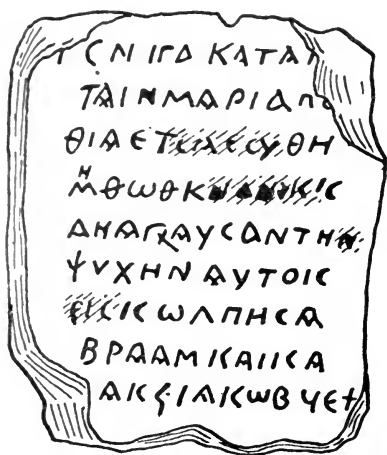 ϹΝΙΓΔ ΚΑΤΑ
ΤΑΙΝΜΑΡΙΑΠΟ
ΘΙΑΕΤ ΘΗ
ΜΗΘΩΘΚ ΙϹ
ΔΗΑΓΧΑΥϹΑΝΤΗΝ
ΨΥΧΗΝΑΥΤΟΙϹ
ΕΙϹΙΚΩΛΠΗϹΑ
ΒΡΑΑΜΚΑΙΙϹΑ
ΑΚϚΙΑΚΩΒЧΕ+